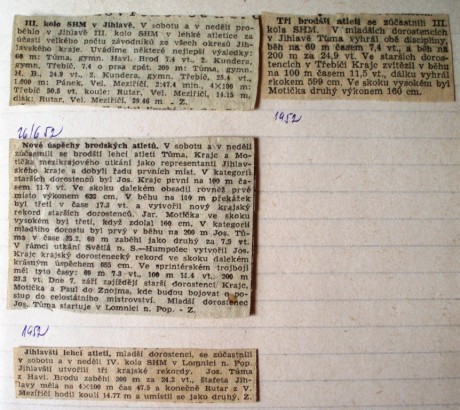 III. kolo SHM v Jihlavě. V sobotu a v neděli pro-
běhlo v Jihlavě III. kolo SHM v lehké atletice za
účasti velkého počtu závodníků ze všech okresů Jih-
lavského kraje. Uvádíme některé nejlepší výsledky:
60 m: Tůma, gymn. Havl. Brod 7,4 vt. 2. Kundera,
gymn. Třebíč, 7,4 o prsa zpět. 200 m: Tůma, gymn.
H. B., 24.9 vt. 2. Kundera, gymn. Třebíč, 25.4 vt.
1.000 m: Pánek, Vel. Meziříčí, 2:47.4 min., 4×100 m:
Třebíč 50.5 vt. koule: Rutar, Vel. Meziříčí, 14.15 m,
disk: Rutar, Vel. Meziříčí, 39.46 m. - Z.
Tři brodští atleti se zúčastnili III.
kola SHM. V mladších dorostencích
v Jihlavě Tůma vyhrál obě disciplíny,
běh na 60 m časem 7,4 vt., a běh na
200 m za 24,9 vt. Ve starších dorosten-
cích v Třebíči Krajc zvítězil v běhu
na 100 m časem 11,5 vt., dálku vyhrál
skokem 599 cm. Ve skoku vysokém byl
Motička druhý výkonem 160 cm.
1952
26/6 52
Nové úspěchy brodských atletů. V sobotu a v neděli
zúčastnili se brodští lehcí atleti Tůma, Krajc a Mo-
tička mezikrajového utkání jako representanti Jihlav-
ského kraje a dobyli řadu prvních míst. V kategorii
starších dorostenců byl Jos. Krajc první na 100 m ča-
sem 11.7 vt. Ve skoku dalekém obsadil rovněž prvé
místo výkonem 632 cm. V běhu na 110 m překážek
byl třetí v čase 17.3 vt. a vytvořil nový krajský
rekord starších dorostenců. Jar. Motička ve skoku
vysokém byl třetí, když zdolal 160 cm. V kategorii
mladšího dorostu byl prvý v běhu na 200 m Jos. Tů-
ma v čase 25.2, 60 m zaběhl jako druhý za 7.5 vt.
V rámci utkání Světlá n. S.—Humpolec vytvořil Jos.
Krajc krajský dorostenecký rekord ve skoku dalekém
krásným úspěchem 665 cm. Ve sprinterském trojboji
měl tyto časy: 60 m 7.3 vt., 100 m 11.4 vt., 200 m
23.5 vt. Dne 7. září zajíždějí starší dorostenci Krajc,
Motička a Paul do Znojma, kde budou bojovat o po-
stup do celostátního mistrovství. Mladší dorostenec
Jos. Tůma startuje v Lomnici n. Pop. - Z.
1952
Jihlavští lehcí atleti, mladší dorostenci, se zúčastnili
v sobotu a v neděli IV. kola SHM v Lomnici n. Pop.
Jihlavští utvořili tři krajské rekordy. Jos. Tůma
z Havl. Brodu zaběhl 200 m za 24.2 vt., štafeta Jih-
lavy měla na 4×100 m čas 47.5 a konečně Rutar z V.
Meziříčí hodil koulí 14.77 m a umístil se jako druhý. Z.